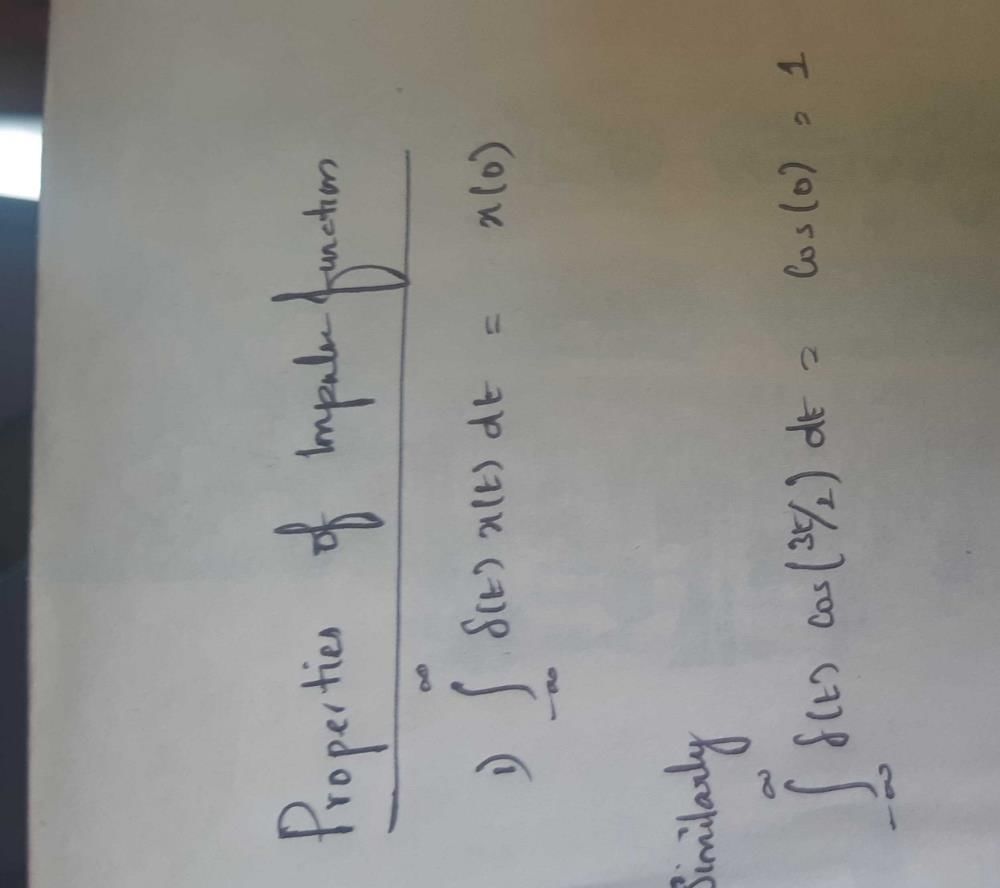 Properties of Impulse function
1) ∫_{-∞}^{∞} δ(t) x(t) dt = x(0)
Similarly
∫_{-∞}^{∞} δ(t) cos(3t/2) dt = cos(0) = 1